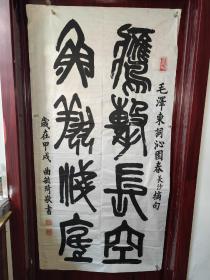 毛澤東詞沁園春長沙摘句
鷹擊長空
魚翔淺底
歲在甲戌 曲毓琦敬書